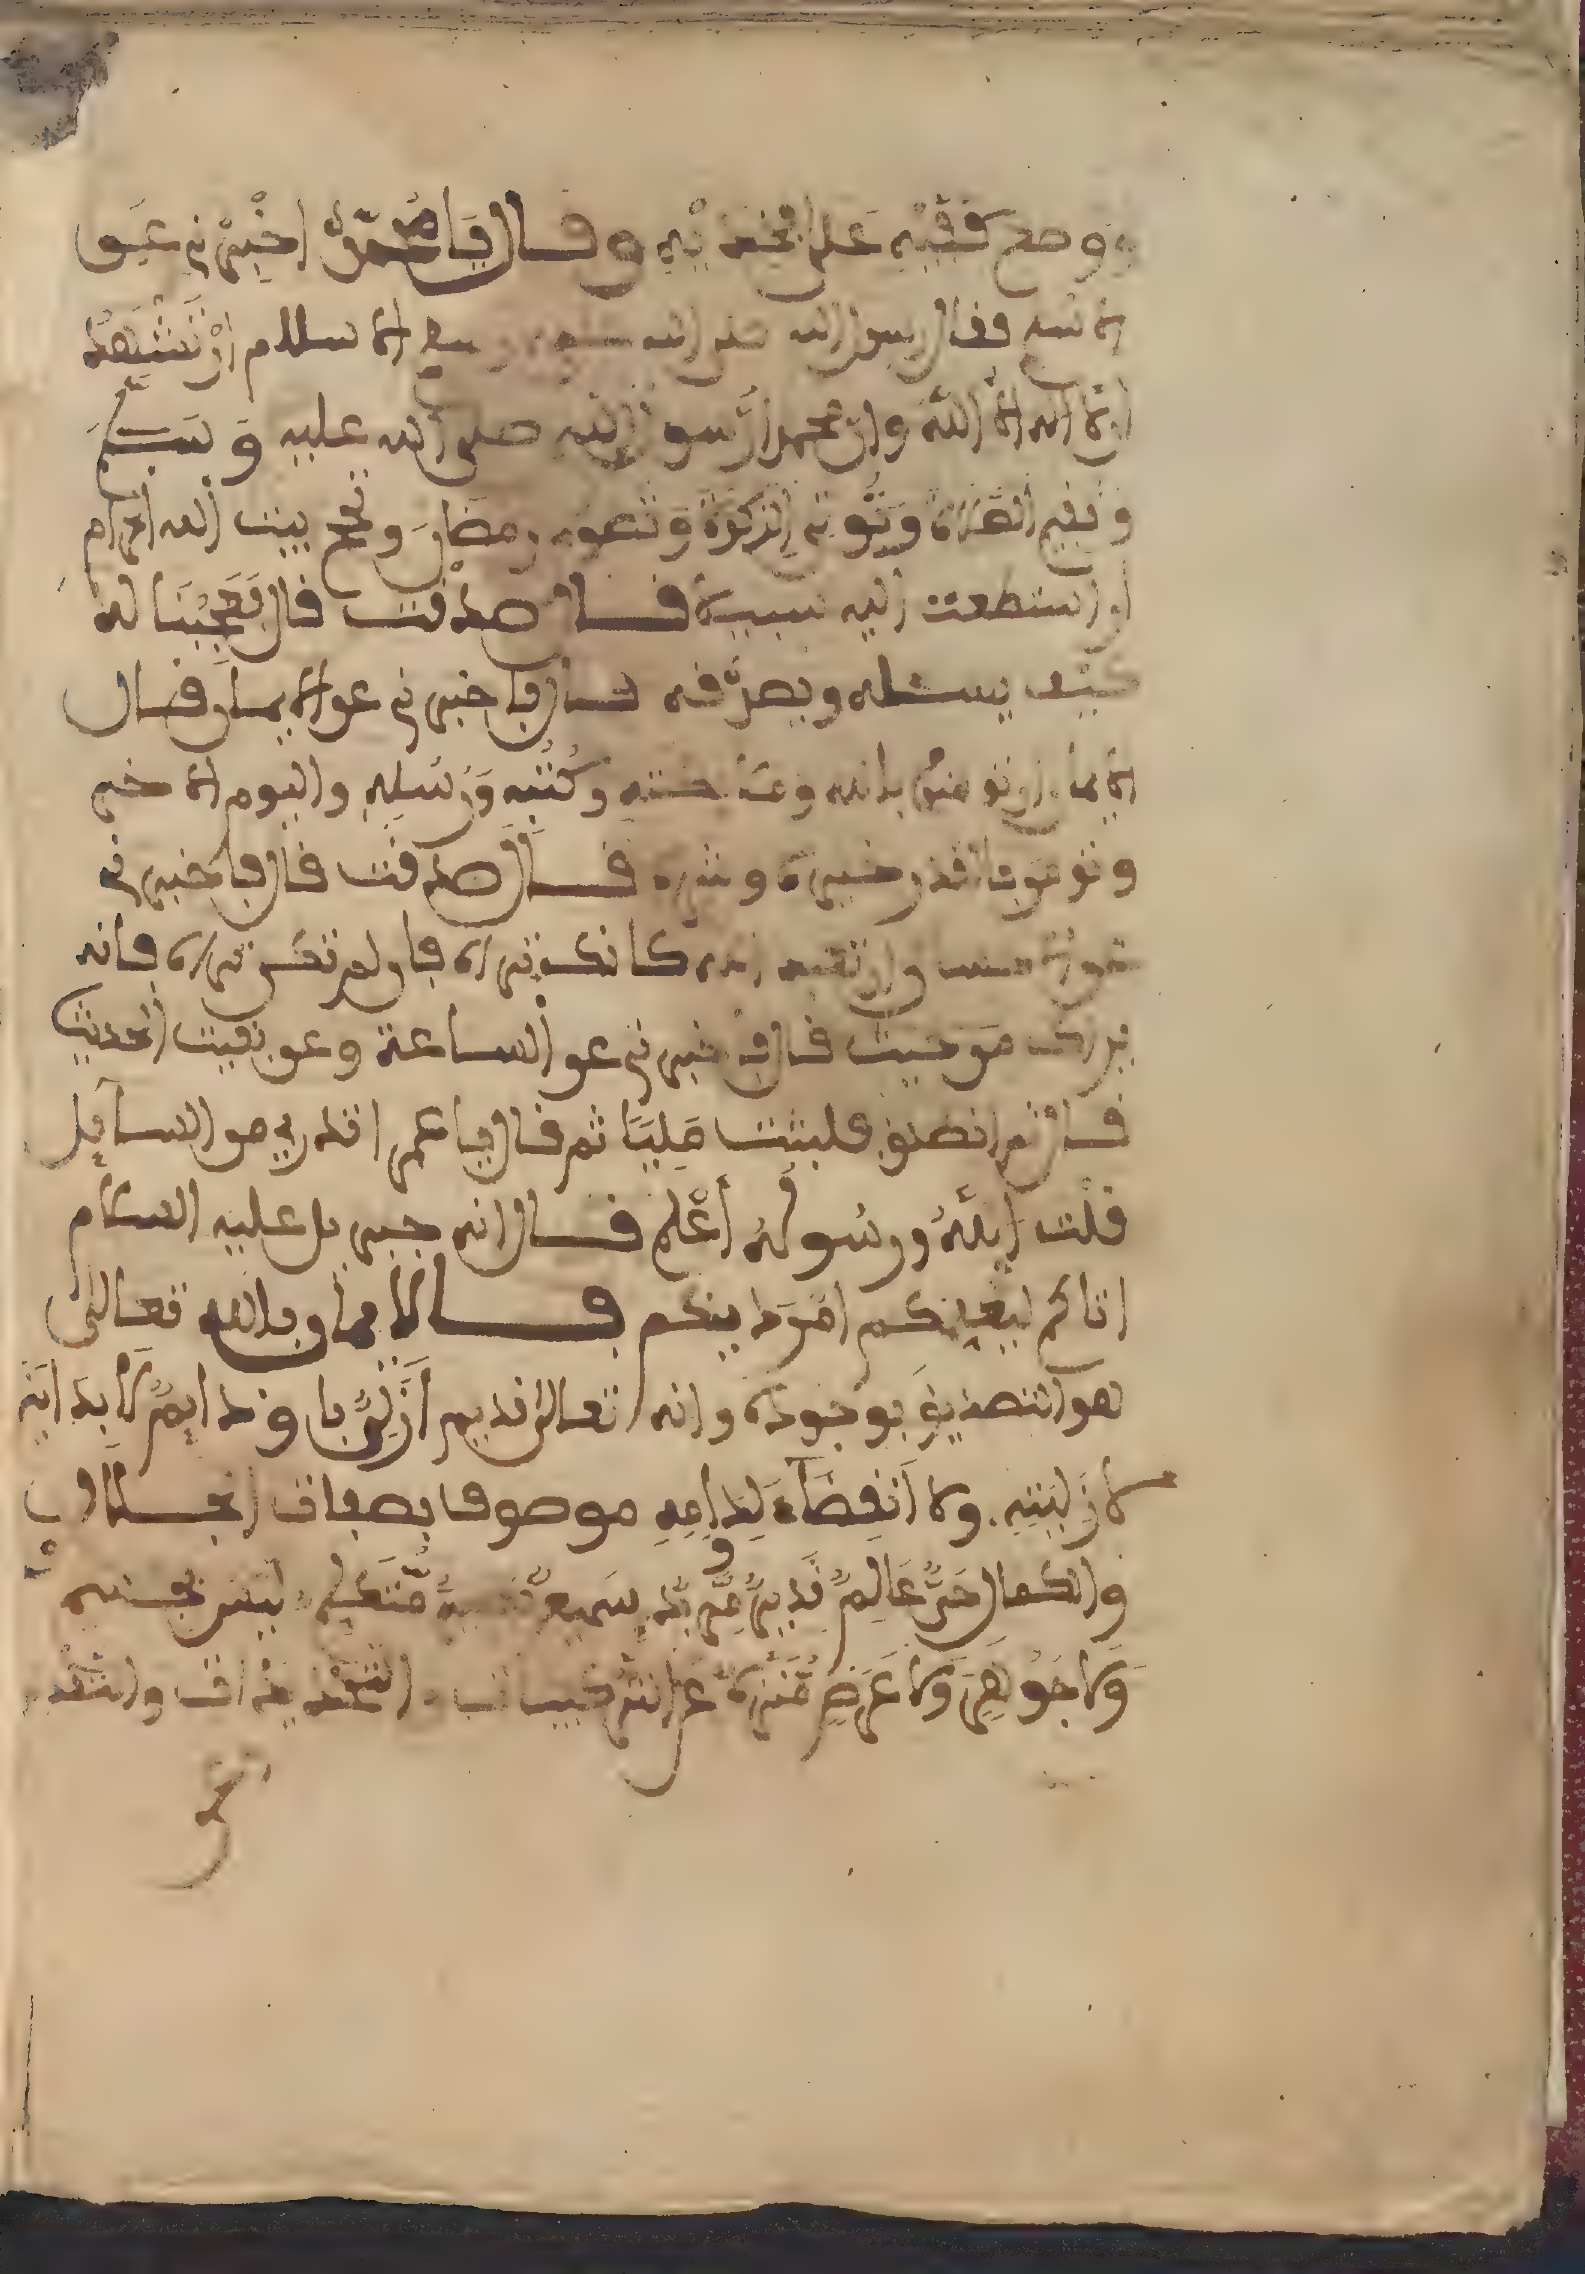 ووضع كفيه على فخذيه وقال يا محمد اخبرني عن
الاسلام فقال رسول الله صلى الله عليه وسلم الاسلام ان تشهد
ان لا اله الا الله وان محمدا رسول الله صلى الله عليه وسلم
وتقيم الصلاة وتوتي الزكوة وتصوم رمضان وتحج بيت الله الحرام
ان استطعت اليه سبيلا قال صدقت قال فعجبنا له
كيف يسئله ويصدقه قال فاخبرني عن الايمان قال
الايمان ان تومن بالله وملائكته وكتبه ورسله واليوم الاخر
وتومن بالقدر خيره وشره قال صدقت قال فاخبرني
عن الاحسان ان تعبد الله كانك تراه فان لم تكن تراه فانه
يراك قال فاخبرني عن الساعة
قال ثم انطلق فلبثت مليا ثم قال يا عمر اتدري من السايل
قلت الله ورسوله أعلم قال انه جبريل عليه السلام
اتاكم ليعلمكم امر دينكم فالايمان بالله تعالى
هو التصديق بوجوده وانه تعالى قديم أزلي باق دايم لا بداية
لازليته ولا انقضاء لدوامه موصوف بصفات الجلال
والكمال حي عالم قدير مريد سميع بصير متكلم ليس بجسم
ولا جوهر ولا عرض منزه عن التركيبات